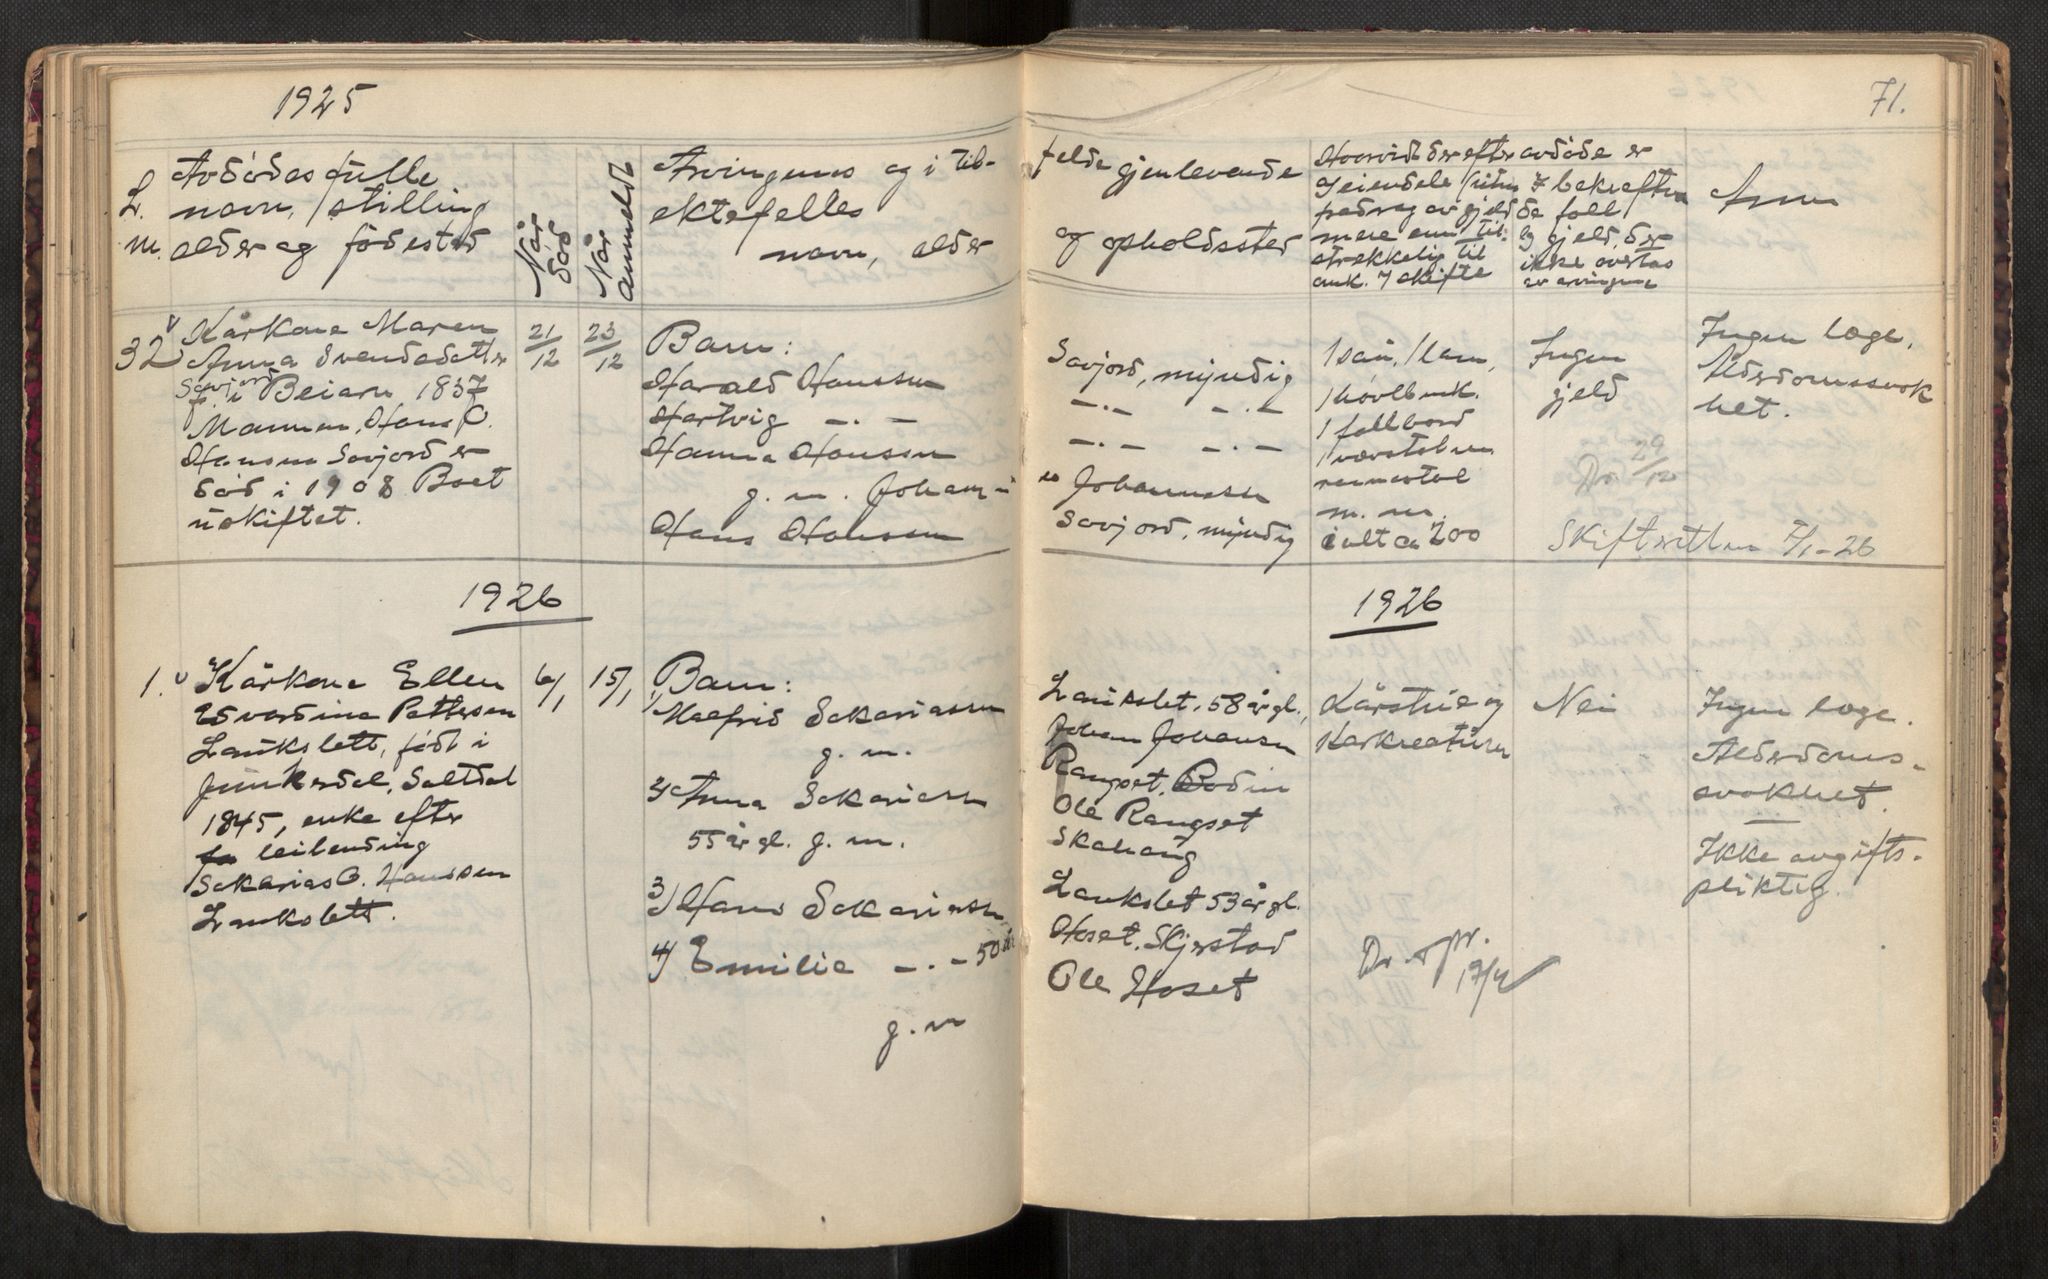 1925
71.
L.
m.
Avdødes fulle
navn, stilling
alder og fødested
Når
død
Når
anmeldt
Arvingenes og i til-
ektefelles
navn, alder
felde gjenlevende
og opholdssted
Hvorvidt der efter avdøde er
og eiendele
mere enn til-
strekkelig til
omk. 7 skifte
7 bekreftes
de fall
og gjeld, der
ikke overtas
av arvingene
Anm
32 v
Kårkone Maren
Anna Svendsdatter
Savjord
f. i Beiarn 1837
Mannen, Hans O.
Hansen Savjord er
død i 1908 Boet
uskiftet.
21/12
23/12
Barn:
Harald Hanssen
Hartvig -.-
Hanna Hanssen
g. m. Johan-
Hans Hanssen
Savjord, myndig
-.- -.-
-.- -.-
es Johannessen
Savjord, myndig
1 sau, 1 lam,
1 høvlbenk.
1 fallbord
m. m.
i alt ca 200
Ingen
gjeld
Dr. 29/12
Skifteretten 7/1-26
Ingen læge.
Alderdomssvak
het.
1926
1926
1. v
Kårkone Ellen
Edvardine Pettersen
Laukslett, født i
Junkerdal, Saltdal
1845, enke efter
leilending
Sakarias O. Hanssen
Laukslett.
6/1
15/1
Barn:
1) Malfrid Sakariassen
g. m.
2) Anna Sakariassen
55 år gl. g. m.
3) Hans Sakariassen
4) Emilie -.- 50 år
g. m
Laukslet, 58 år gl.,
Johan Johansen
Rangset, Bodin
Ole Rangset
Skahaug
Laukslet 53 år gl.
Hoset, Skjerstad
Ole Hoset
Kårstue og
Kårkreaturer
Nei
Dr. opr.
Ingen læge.
Alderdoms-
svakhet.
Ikke avgifts-
pliktig.